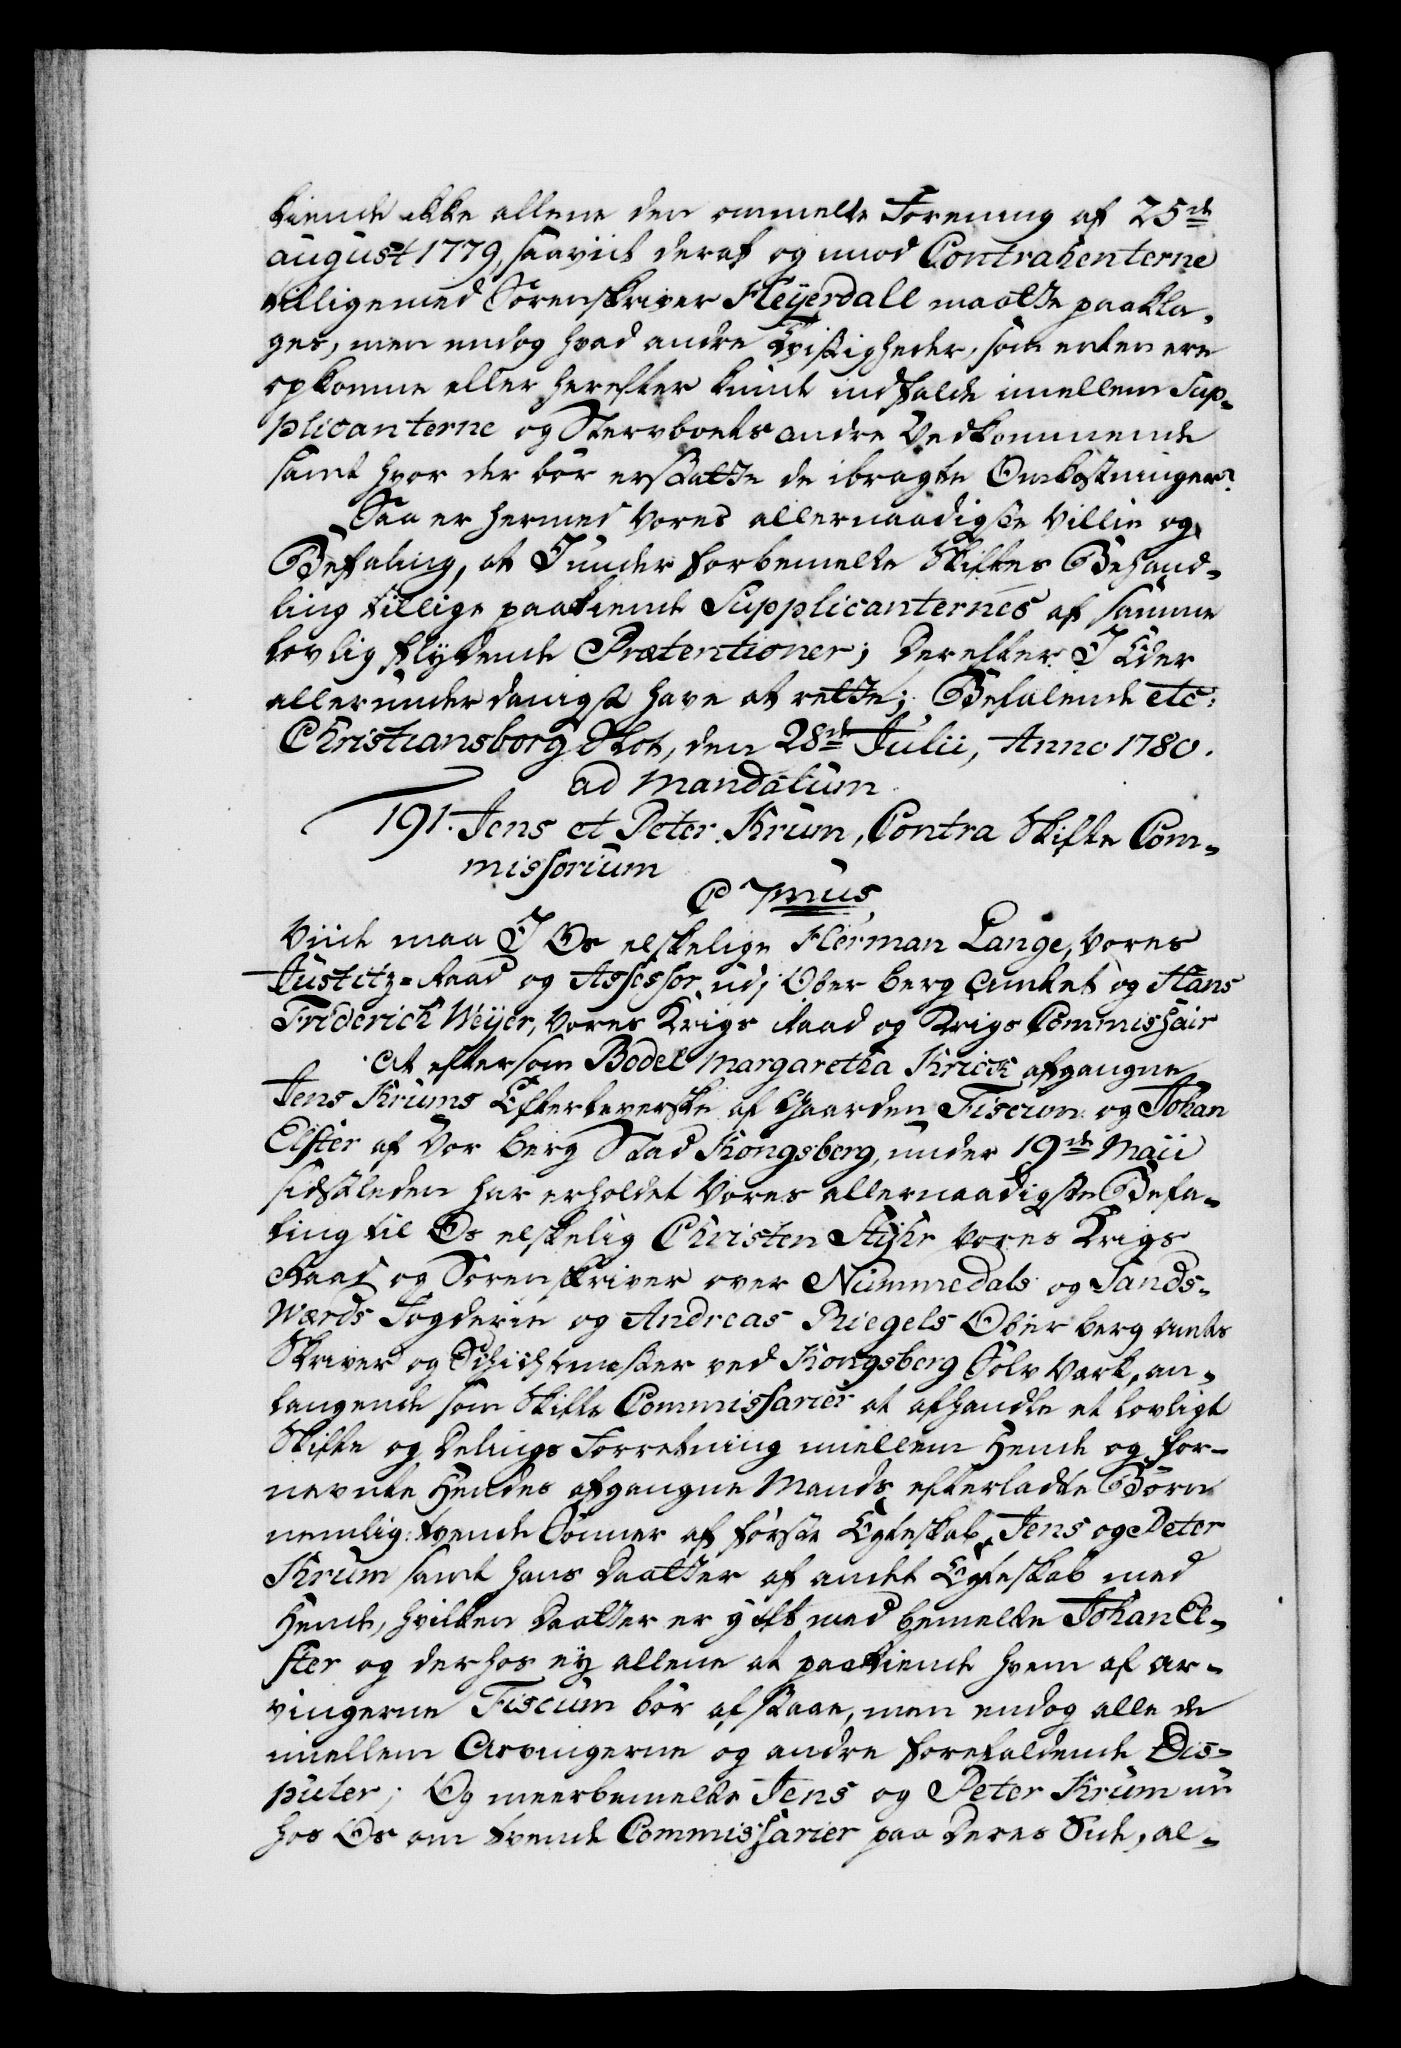 kiende ikke allene den ommelte Forening af 25de
august 1779, saaviit deraf og imod Contrahenterne
tilligemed Sorenskriver Heyerdall maatte paakla-
ges, men endog hvad andre Tvistigheder, som enten ere
opkomne eller herefter kunde indfalde imellem Sup-
plicanterne og Sterboets andre Vedkommende
samt hvor der bör erstatte de ibragte Omkostninger?
Saa er hermed Vores allernaadigste Villie og
Befaling, at I under forbemelte Skiftes Behand-
ling tillige paakiende Supplicanternes af samme
lovlig flydende Prætentioner; Derefter I Eder
allerunderdanigst have at rette; Befalende etc:
Christiansborg Slot, den 28de Julii, Anno 1780.
ad mandatum
191. Jens et Peter Krum, Contra Skifte Com-
missorium
C 7mus
Viide maa I Os elskelige Herman Lange, Vores
Justitz-Raad og Assessor udi Ober Berg Amtet og Hans
Friderich Weyer, Vores Krigs Raad og Krigs Commissair
At eftersom Bodel Margaretha Krick afgangne
Jens Krums Efterleverske af Gaarden Fiscum og Johan
Elster af Vor Berg Stad Kongsberg, under 19de Maii
sidstleden har erholdet Vores allernaadigste Befa-
ling til Os elskelig Christen Styhr Vores Krigs
Raad og Sorenskriver over Nummedals og Sands-
værds Fogderie og Andreas Riegels Ober berg Amts
Skriver og Schichtmester ved Kongsberg Sölv Værk, an-
langende som Skifte Commissarier at afhandle et lovligt
Skifte og Delings Forretning mellem Hende og for-
nevnte Hendes afgangne Mands efterladte Börn
nemlig: tvende Sönner af förste Egteskab, Jens og Peter
Krum samt hans Daatter af andet Egteskab med
Hende, hvilken Daatter er gift med bemelte Johan El-
ster og derhos ey allene at paakiende hvem af Ar-
vingerne Fiscum bör afstaae, men endog alle de
imellem Arvingerne og andre forefaldende Dis-
puter; Og meerbemelte Jens og Peter Krum nu
hos Os om tvende Commissarier paa Deres Side, al-